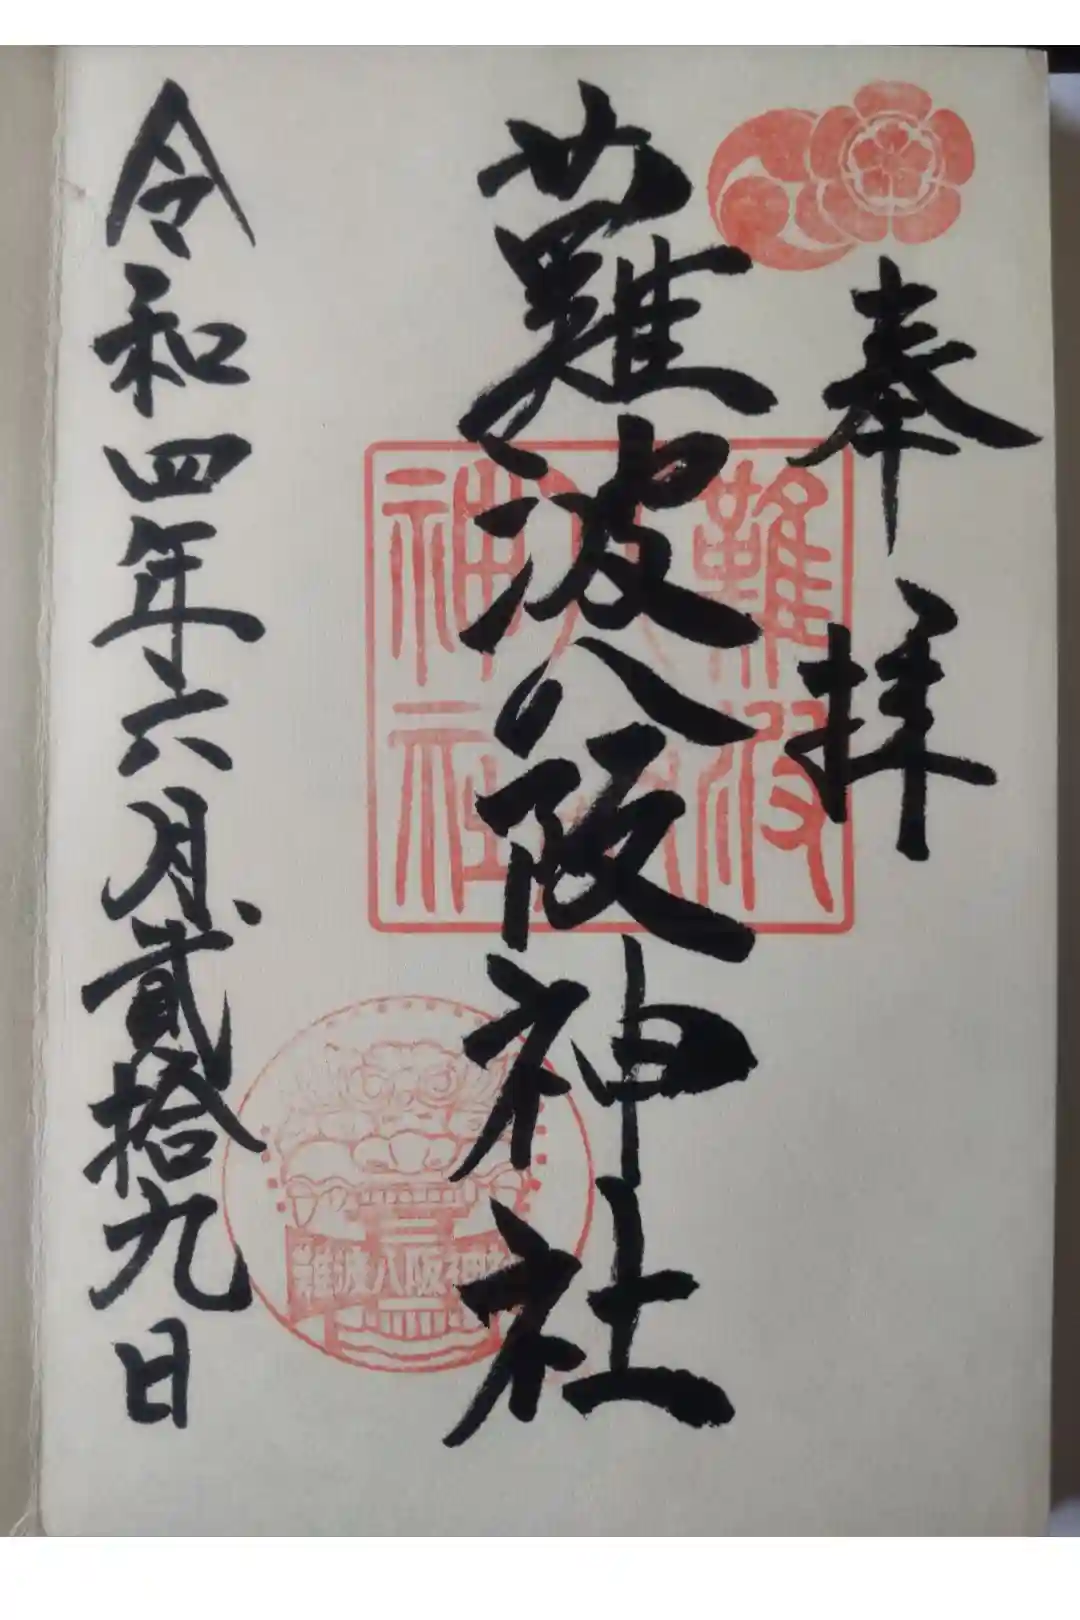 奉拝
難波八阪神社
令和四年六月貳拾九日
難波
神社
難波八阪神社